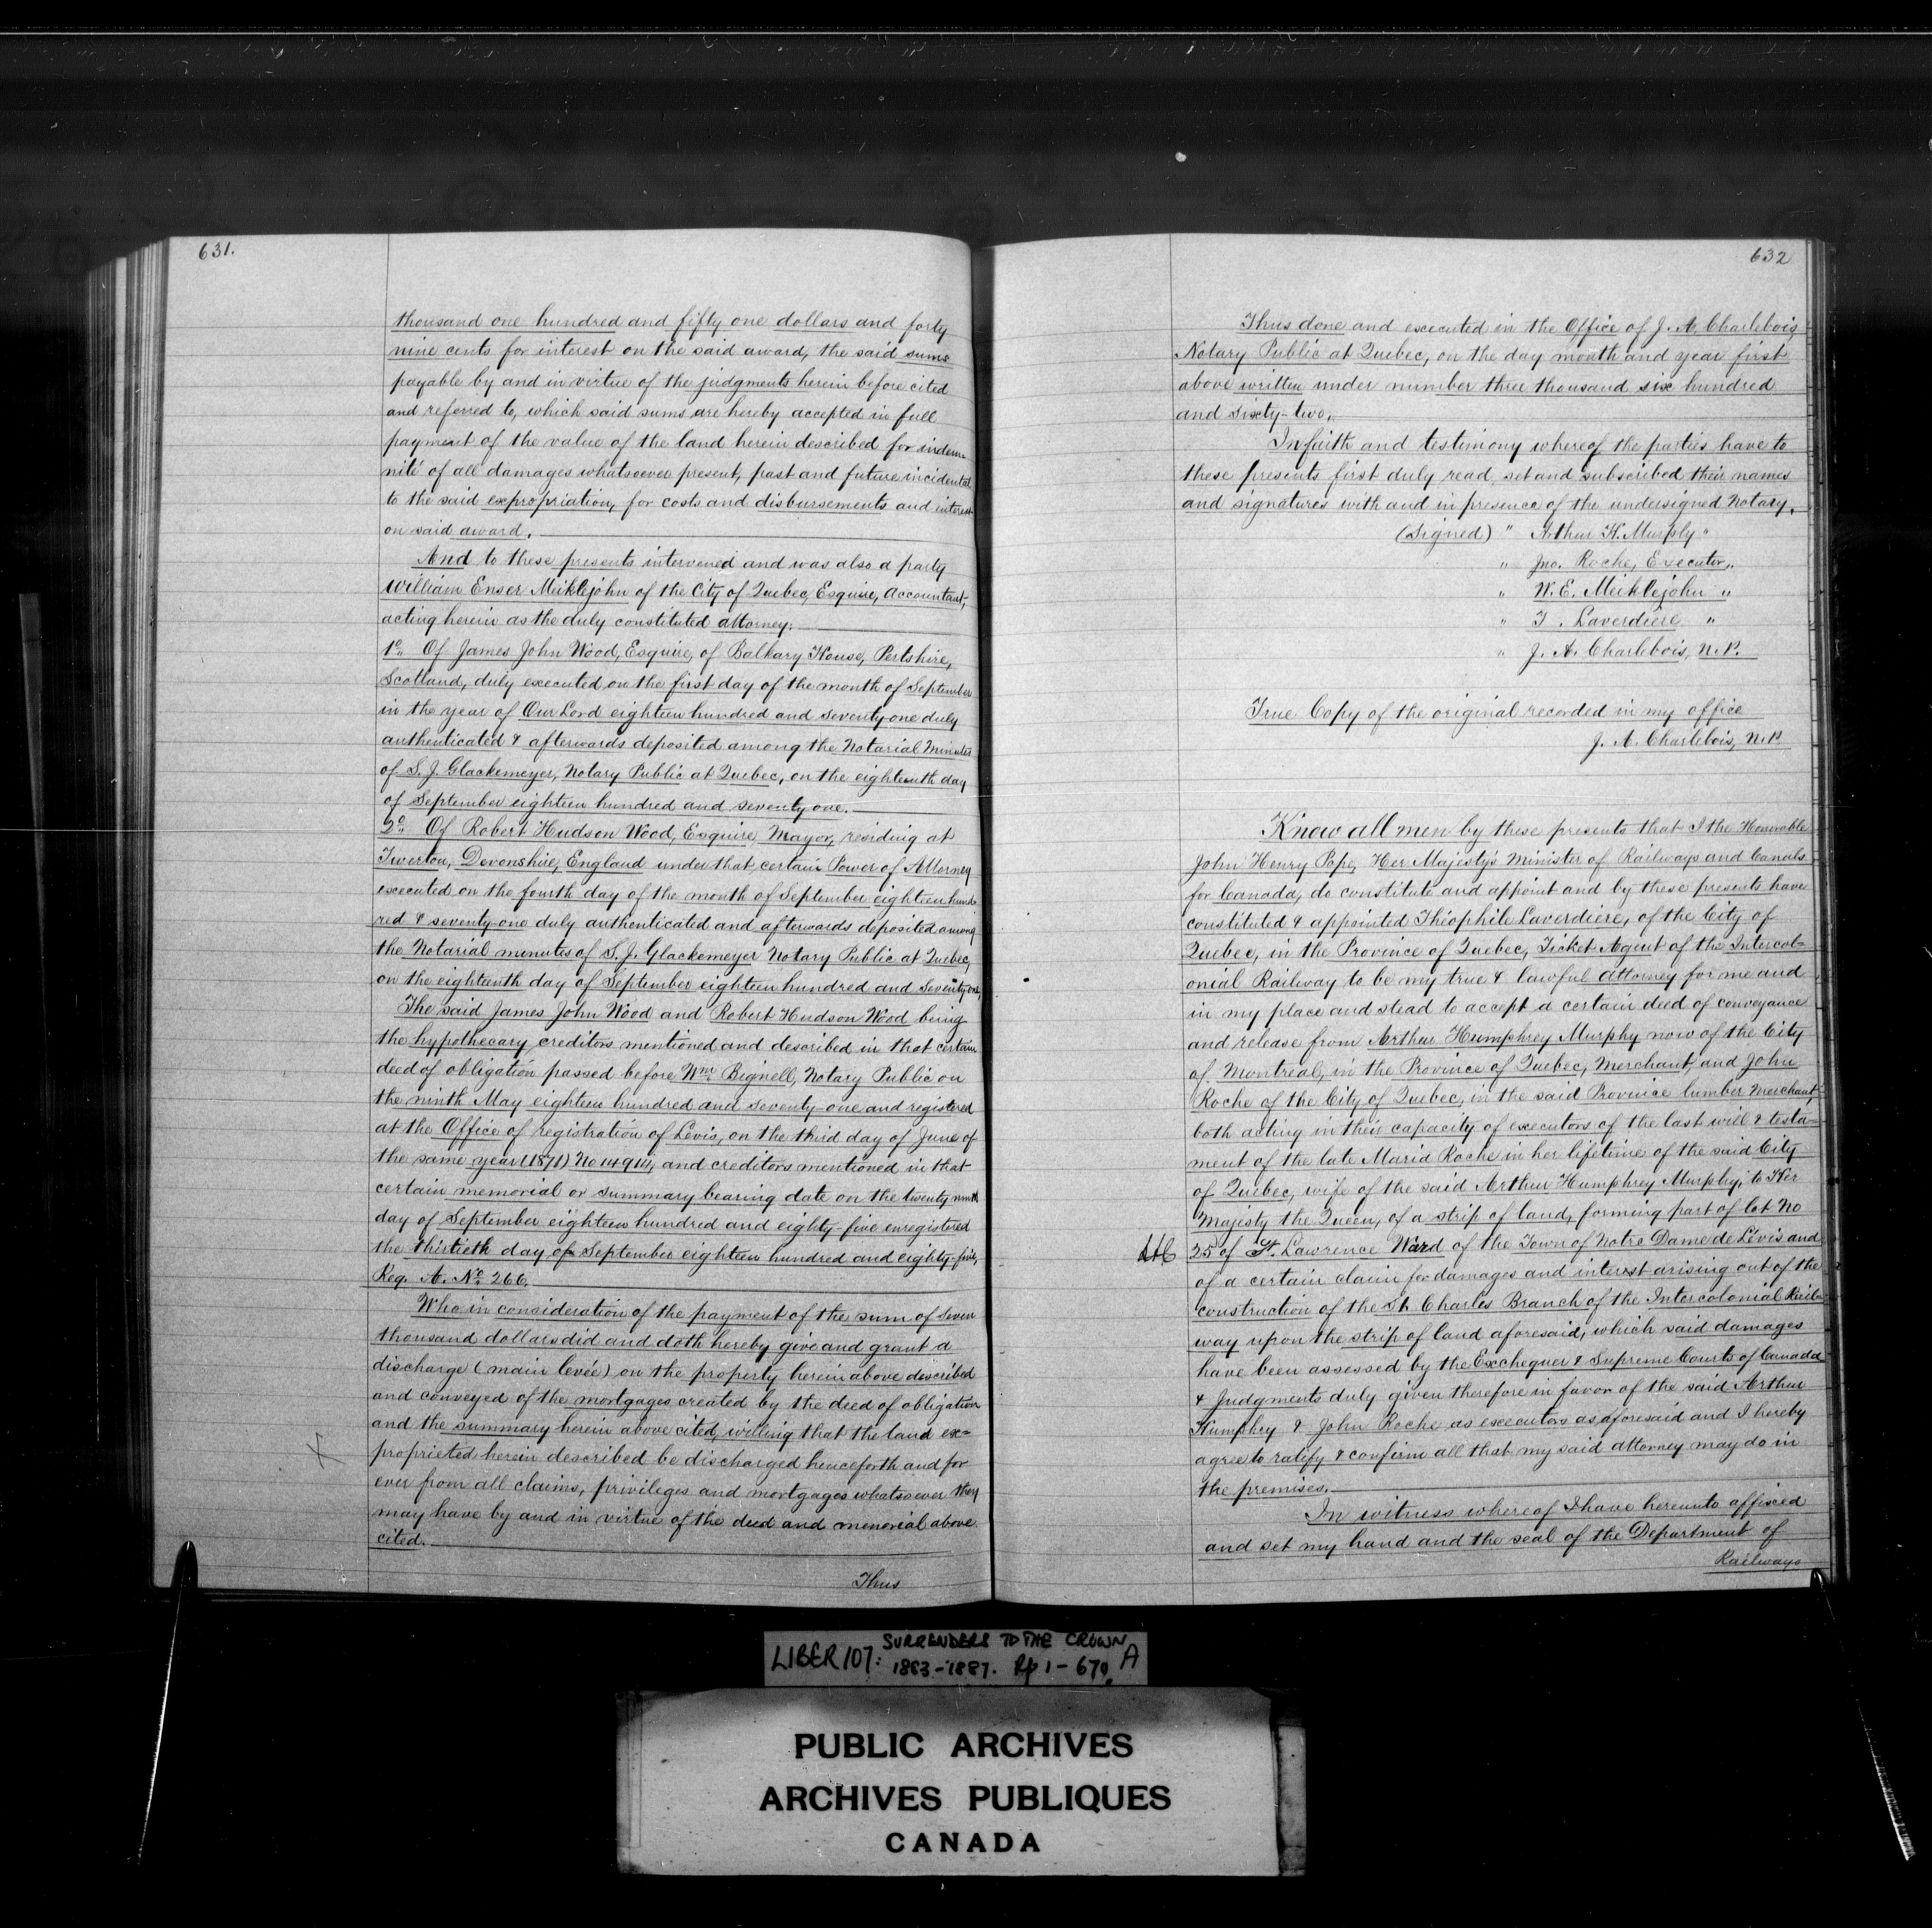 631.
thousand one hundred and fifty one dollars and forty
nine cents for interest on the said award, the said sums
payable by and in virtue of the judgments herein before cited
and referred to, which said sums are hereby accepted in full
payment of the value of the land herein described for indem=
nité of all damages whatsoever present, past and future incidental
to the said expropriation, for costs and disbursements and interest
on said award.
And to these presents intervened and was also a party
William Enser Meiklejohn of the City of Quebec, Esquire, Accountant,
acting herein as the duly constituted attorney:
1º Of James John Wood, Esquire, of Balkary House, Pertshire,
Scotland, duly executed on the first day of the month of September
in the year of Our Lord eighteen hundred and seventy-one duly
authenticated & afterwards deposited among the Notarial Minutes
of S. J. Glackemeyer, Notary Public at Quebec, on the eighteenth day
of September eighteen hundred and seventy one.
2º Of Robert Hudson Wood, Esquire, Mayor, residing at
Tiverton, Devonshire, England under that certain Power of Attorney
executed on the fourth day of the month of September eighteen hund
red & seventy-one duly authenticated and afterwards deposited among
the Notarial menutes of S. J. Glackemeyer Notary Public at Quebec,
on the eighteenth day of September eighteen hundred and seventy one,
The said James John Wood and Robert Hudson Wood being
the hypothecary creditors mentioned and described in that certain
deed of obligation passed before Wm. Bignell, Notary Public on
the ninth May eighteen hundred and seventy-one and registered
at the Office of registration of Levis, on the third day of June of
the same year (1871) No 14914, and creditors mentioned in that
certain memorial or summary bearing date on the twenty ninth
day of September eighteen hundred and eighty-five enregistered
the thirtieth day of September eighteen hundred and eighty-five,
Reg. A. No. 266.
Who in consideration of the payment of the sum of seven
thousand dollars did and doth hereby give and grant a
discharge (main levée) on the property herein above described
and conveyed of the mortgages created by the deed of obligation
and the summary herein above cited, willing that the land ex=
X proprieted herein described be discharged henceforth and for
ever from all claims, privileges and mortgages whatsoever they
may have by and in virtue of the deed and memorial above
cited.
Thus
632
Thus done and executed in the Office of J. A. Charlebois,
Notary Public at Quebec, on the day month and year first
above written under number three thousand six hundred
and sixty-two.
In faith and testimony whereof the parties have to
these presents first duly read, set and subscribed their names
and signatures with and in presence of the undersigned Notary.
(Signed) " Arthur H. Murphy "
" Jno. Roche, Executor "
" W. E. Meiklejohn "
" T. Laverdière "
" J. A. Charlebois, N.P.
True Copy of the original recorded in my office
J. A. Charlebois, N.P.
Know all men by these presents that I the Honorable
John Henry Pope, Her Majesty's Minister of Railways and Canals
for Canada, do constitute and appoint and by these presents have
constituted & appointed Théophile Laverdiere, of the City of
Quebec, in the Province of Quebec, Ticket Agent of the Intercol=
onial Railway to be my true & lawful attorney for me and
in my place and stead to accept a certain deed of conveyance
and release from Arthur Humphrey Murphy now of the City
of Montreal, in the Province of Quebec, Merchant, and John
Roche of the City of Quebec, in the said Province lumber merchant,
both acting in their capacity of executors of the last will & testa=
ment of the late Maria Roche in her lifetime of the said City
of Quebec, wife of the said Arthur Humphrey Murphy; to Her
Majesty the Queen, of a strip of land, forming part of lot No
25 of St. Lawrence Ward of the Town of Notre Dame de Lévis and
of a certain claim for damages and interest arising out of the
construction of the St. Charles Branch of the Intercolonial Rail=
way upon the strip of land aforesaid, which said damages
have been assessed by the Exchequer & Supreme Courts of Canada
& Judgments duly given therefore in favor of the said Arthur
Humphey & John Roche as executors as aforesaid and I hereby
agree to ratify & confirm all that my said attorney may do in
the premises.
In witness whereof I have hereunto affixed
and set my hand and the seal of the Department of
Railways
LIBER 107: SURRENDERS TO THE CROWN A
1883-1887. Pp 1-670.
PUBLIC ARCHIVES
ARCHIVES PUBLIQUES
CANADA